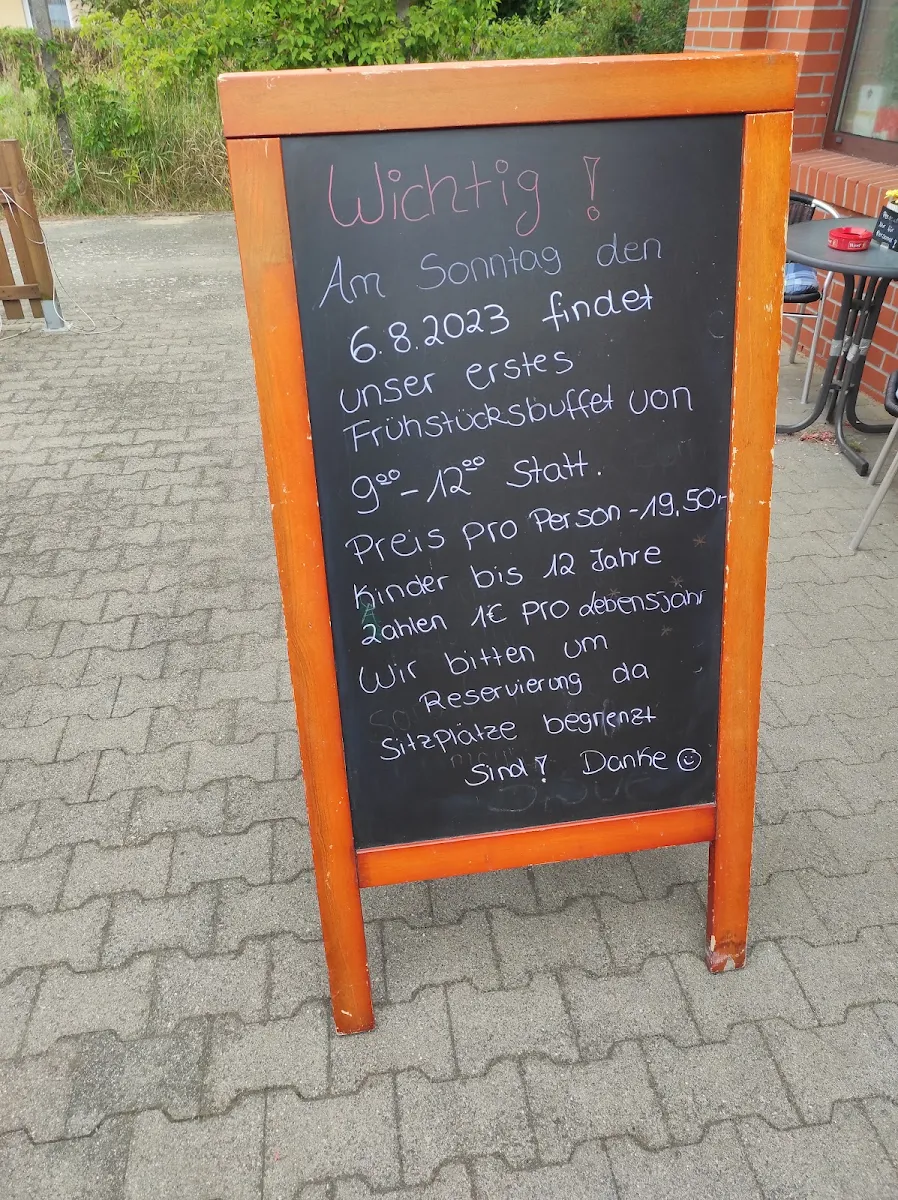 Wichtig!
Am Sonntag den
6.8.2023 findet
unser erstes
Frühstücksbuffet von
9⁰⁰-12⁰⁰ Statt.
Preis pro Person -19,50,-
Kinder bis 12 Jahre
zahlen 1€ pro Lebensjahr
Wir bitten um
Reservierung da
Sitzplätze begrenzt
Sind! Danke ☺